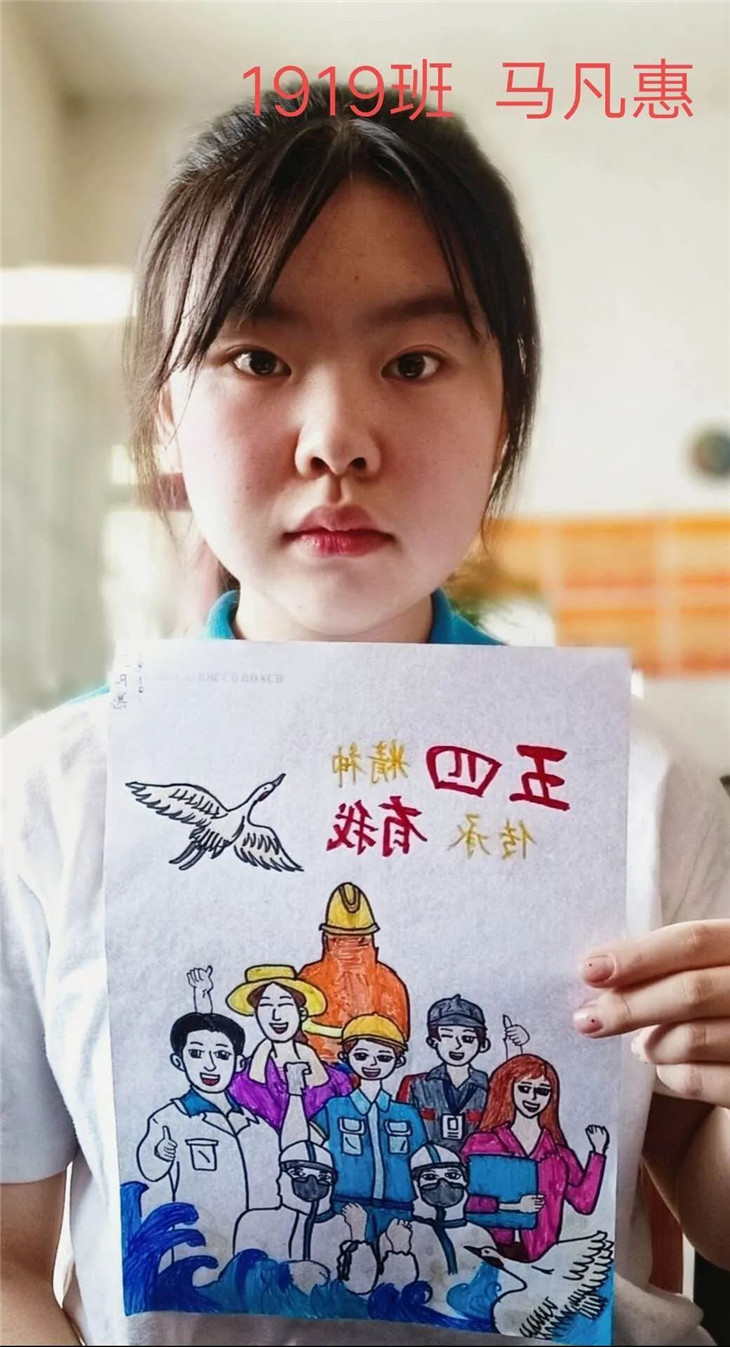 1919班 马凡惠
五四精神
传承有我